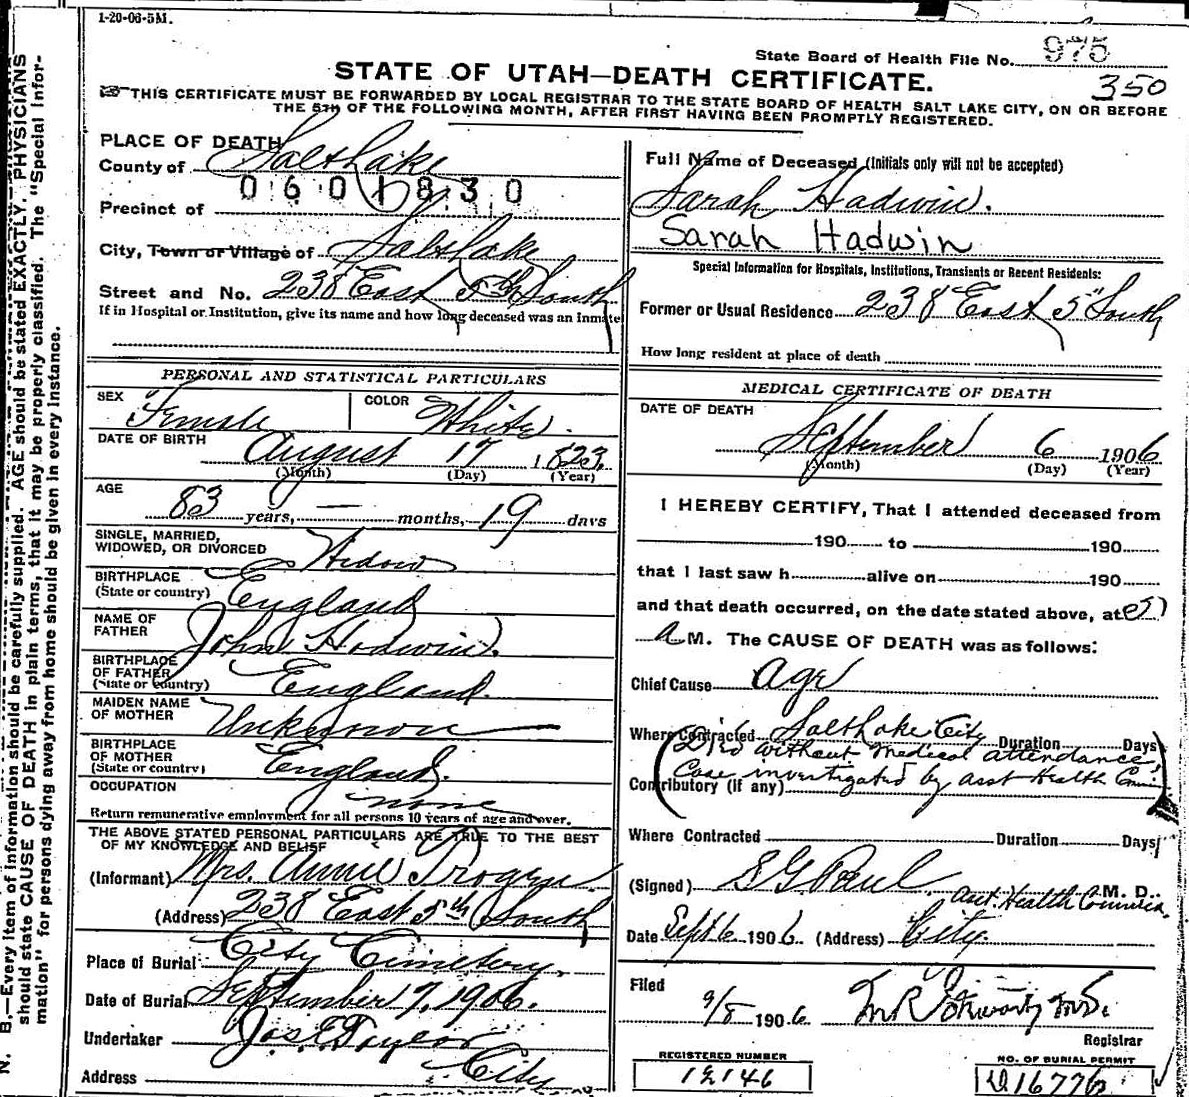 1-20-06-5M.
State Board of Health File No. 975
350
STATE OF UTAH—DEATH CERTIFICATE.
THIS CERTIFICATE MUST BE FORWARDED BY LOCAL REGISTRAR TO THE STATE BOARD OF HEALTH SALT LAKE CITY, ON OR BEFORE
THE 5TH OF THE FOLLOWING MONTH, AFTER FIRST HAVING BEEN PROMPTLY REGISTERED.
PLACE OF DEATH
County of Salt Lake
0601830
Precinct of
City, Town or Village of Salt Lake
Street and No. 238 East 5th South
If in Hospital or Institution, give its name and how long deceased was an inmate
Full Name of Deceased (Initials only will not be accepted)
Sarah Hadwin.
Sarah Hadwin
Special Information for Hospitals, Institutions, Transients or Recent Residents:
Former or Usual Residence 238 East 5" South
How long resident at place of death
PERSONAL AND STATISTICAL PARTICULARS
SEX Female COLOR White.
DATE OF BIRTH August 17 1823
(Month) (Day) (Year)
AGE
83 years, — months, 19 days
SINGLE, MARRIED,
WIDOWED, OR DIVORCED Widow
BIRTHPLACE
(State or country) England
NAME OF
FATHER John Hadwin.
BIRTHPLACE
OF FATHER
(State or country) England.
MAIDEN NAME
OF MOTHER Unknown
BIRTHPLACE
OF MOTHER
(State or country) England.
OCCUPATION
none
Return remunerative employment for all persons 10 years of age and over.
THE ABOVE STATED PERSONAL PARTICULARS ARE TRUE TO THE BEST
OF MY KNOWLEDGE AND BELIEF
(Informant) Mrs. Annie
(Address) 238 East 5th South
Place of Burial City Cemetery.
Date of Burial September 17, 1906.
Undertaker Jos E Taylor
Address City
MEDICAL CERTIFICATE OF DEATH
DATE OF DEATH
September 6 1906
(Month) (Day) (Year)
I HEREBY CERTIFY, That I attended deceased from
190 to 190
that I last saw h alive on 190
and that death occurred, on the date stated above, at
A M. The CAUSE OF DEATH was as follows:
Chief Cause Age
Where Contracted Salt Lake City Duration Days
(Died without medical attendance,
Case investigated by asst Health Com)
Contributory (if any)
Where Contracted Duration Days
(Signed) S G Paul M. D.
asst. Health Commis.
Date Sept 6 1906 (Address) City.
Filed
9/8 1906 M.D.
Registrar
REGISTERED NUMBER
12146
NO. OF BURIAL PERMIT
16776
N. B.—Every item of information should be carefully supplied. AGE should be stated EXACTLY. PHYSICIANS
should state CAUSE OF DEATH in plain terms, that it may be properly classified. The "Special Infor-
mation" for persons dying away from home should be given in every instance.